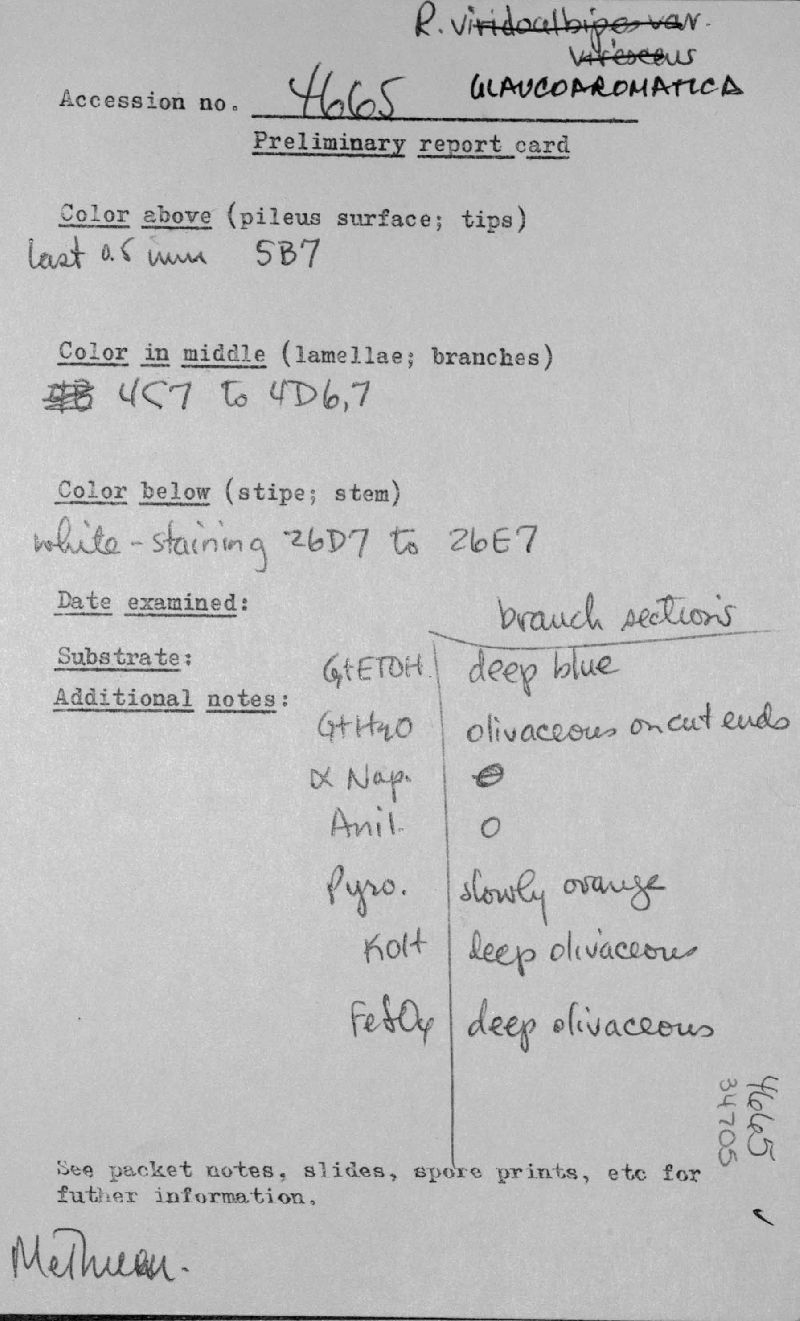 R. viridoalbipes var.
virescens
GLAUCOAROMATICA
Accession no. 4665
Preliminary report card
Color above (pileus surface; tips)
last 0.5 mm 5B7
Color in middle (lamellae; branches)
4C7 to 4D6,7
Color below (stipe; stem)
white-staining 26D7 to 26E7
Date examined:
branch sections
Substrate:
G+ETOH. deep blue
Additional notes:
G+H2O olivaceous on cut ends
α Nap. 0
Anil. 0
Pyro. slowly orange
KOH deep olivaceous
FeSO4 deep olivaceous
4665
34705
See packet notes, slides, spore prints, etc for
futher information.